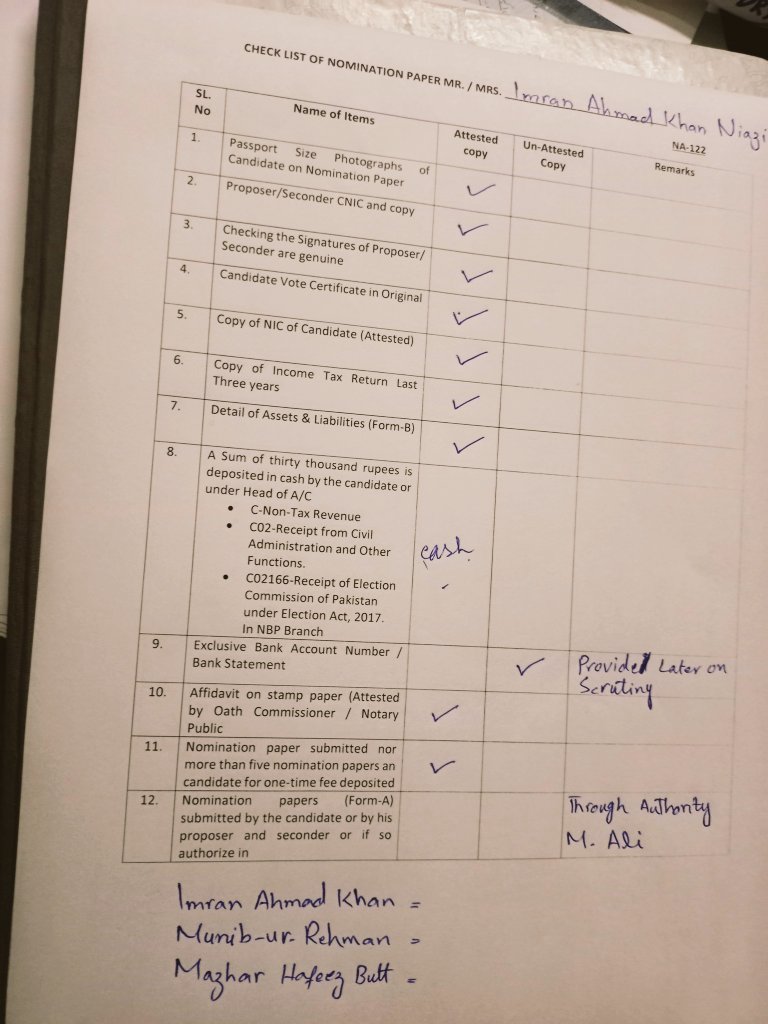 CHECK LIST OF NOMINATION PAPER MR. / MRS. Imran Ahmad Khan Niazi
NA-122
SL. No
Name of Items
Attested copy
Un-Attested Copy
Remarks
1.
Passport Size Photographs of
Candidate on Nomination Paper
✓
2.
Proposer/Seconder CNIC and copy
✓
3.
Checking the Signatures of Proposer/
Seconder are genuine
✓
4.
Candidate Vote Certificate in Original
✓
5.
Copy of NIC of Candidate (Attested)
✓
6.
Copy of Income Tax Return Last
Three years
✓
7.
Detail of Assets & Liabilities (Form-B)
✓
8.
A Sum of thirty thousand rupees is
deposited in cash by the candidate or
under Head of A/C
• C-Non-Tax Revenue
• C02-Receipt from Civil
Administration and Other
Functions.
• C02166-Receipt of Election
Commission of Pakistan
under Election Act, 2017.
In NBP Branch
cash
9.
Exclusive Bank Account Number /
Bank Statement
✓
Provided Later on
Scrutiny
10.
Affidavit on stamp paper (Attested
by Oath Commissioner / Notary
Public
✓
11.
Nomination paper submitted nor
more than five nomination papers an
candidate for one-time fee deposited
✓
12.
Nomination papers (Form-A)
submitted by the candidate or by his
proposer and seconder or if so
authorize in
Through Authority
M. Ali
Imran Ahmad Khan =
Munib-ur-Rehman =
Mazhar Hafeez Butt =